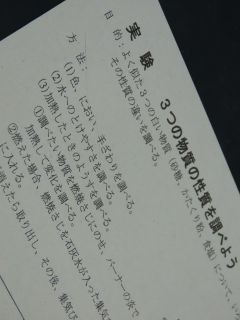 実験 3つの物質の性質を調べよう
目的:よく似た3つの白い物質(砂糖、かたくり粉、食塩)について、
その性質の違いを調べる。
方法:
(1)色、におい、手ざわりを調べる。
(2)水へのとけやすさを調べる。
(3)加熱したときのようすを調べる。
①調べたい物質を燃焼さじにのせ、バーナーの炎で
加熱して変化を調べる。
②燃えた場合、燃焼さじを石灰水が入った集気び
に入れる。
火が消えたら取り出し、その後、集気び